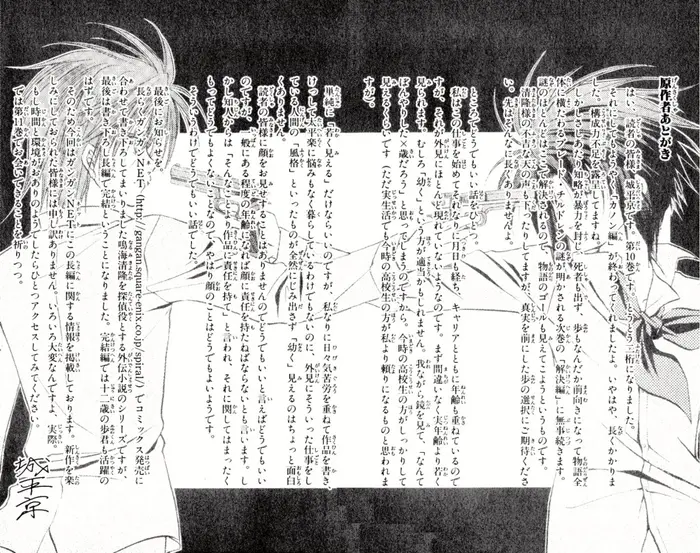 原作者あとがき
はい、読者の皆様、城平京です。第10巻です。とうとう二桁になりました。
それにしてもようやく「カノン編」が終わってくれましたよ。いやはや、長くかかりま
した。構成力不足を露呈してますね。
しかしさしあたり知略が暴力を封じ、死者も出ず、歩もなんだか前向きになって物語全
体に横たわるブレード・チルドレンの謎が明かされる次巻の「解決編」に無事続きます。
謎のほとんどはここで解決されるので、物語のゴールも見えてこようというものです。
清隆様の不吉な天の声も下ったりしてますが、真実を前にした歩の選択にご期待くださ
い。先はそんなに長くありませんよ。
私はこの仕事を始めてそれなりに月日も経ち、キャリアとともに年齢も重ねているので
すが、それが外見にほとんど現れていないようなのです。まず間違いなく実年齢より若く
見られます。むしろ「幼く」という方が適切かもしれません。我ながら鏡を見て、「なんて
ぼんやりした×歳だろう」と思ってしまうのですから。今時の高校生の方がしっかりして
見えるくらいです（ただ実生活でも今時の高校生の方が私より頼りになるものと思われま
すが）。
単純に「若く見える」だけならいいのですが、私なりに日々気苦労を重ねて作品を書き、
けっして太平楽に悩みもなく暮らしているわけでもないのに、外見にそういった仕事をし
ている人間の「風格」といったものが全然にじみ出ず「幼く」見えるのはちょっと面白
くありません。
読者の皆様に顔をお見せすることはありませんのでどうでもいいと言えばどうでもいい
のですが、一般にある程度の年齢になれば顔に責任を持たねばならないとも言います。し
かし知人からは「そんなことより作品に責任を持て」と言われ、それに関してはまったく
もってそうでなくもないことなので、やはり顔のことはどうでもよいようです。
そういうわけでどうでもいい話でした。
最後にお知らせを。
長らくガンガンNET（http://gangan.square-enix.co.jp/spiral/）でコミックス発売に
合わせて書き下ろしてまいりました鳴海清隆を探偵役とする外伝小説のシリーズですが、
最後は書き下ろし長編で完結ということになりました。完結編では十二歳の歩君も活躍の
はずです。
そのため今回はガンガンNETにはこの長編に関する情報が掲載しております。新作を楽
しみにしておられた皆様には申し訳ありません。いろいろ大変なんですよ、実際。
もし時間と環境がおありのようでしたらひとつアクセスしてみてください。
では第11巻でお会いできることを祈りつつ。
城平京